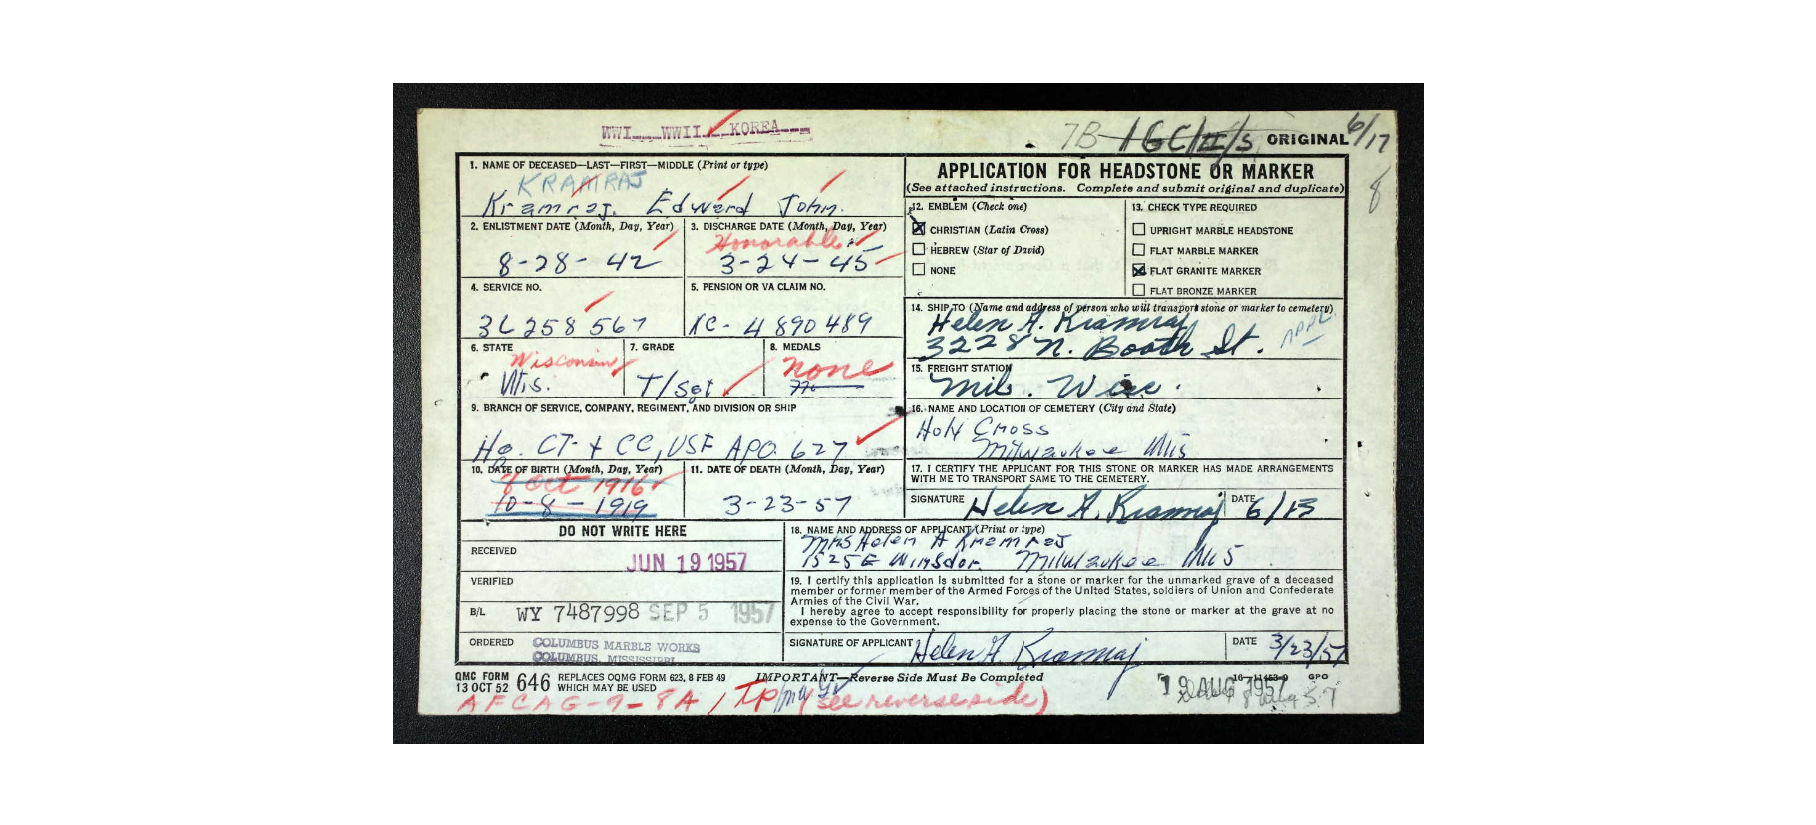 WWI___WWII___KOREA___
7B 1GC/H/S ORIGINAL 6/17
8
1. NAME OF DECEASED—LAST—FIRST—MIDDLE (Print or type)
KRAMRAJ
Kramraj. Edward John.
2. ENLISTMENT DATE (Month, Day, Year)
8-28-42
3. DISCHARGE DATE (Month, Day, Year)
Honorable
3-24-45
4. SERVICE NO.
36 258 567
5. PENSION OR VA CLAIM NO.
XC-4 890 489
6. STATE
Wisconsin
Wis.
7. GRADE
T/Sgt
8. MEDALS
none
9. BRANCH OF SERVICE, COMPANY, REGIMENT, AND DIVISION OR SHIP
Hq. CT + CC, USF APO. 627
10. DATE OF BIRTH (Month, Day, Year)
8 Oct 1916
10-8-1919
11. DATE OF DEATH (Month, Day, Year)
3-23-57
DO NOT WRITE HERE
RECEIVED
JUN 19 1957
VERIFIED
B/L WY 7487998 SEP 5 1957
ORDERED COLUMBUS MARBLE WORKS
COLUMBUS, MISSISSIPPI
APPLICATION FOR HEADSTONE OR MARKER
(See attached instructions. Complete and submit original and duplicate)
12. EMBLEM (Check one)
CHRISTIAN (Latin Cross)
HEBREW (Star of David)
NONE
13. CHECK TYPE REQUIRED
UPRIGHT MARBLE HEADSTONE
FLAT MARBLE MARKER
FLAT GRANITE MARKER
FLAT BRONZE MARKER
14. SHIP TO (Name and address of person who will transport stone or marker to cemetery)
Helen A. Kramraj
3228 N. Booth St. APPL
15. FREIGHT STATION
Mil. Wisc.
16. NAME AND LOCATION OF CEMETERY (City and State)
Holy Cross
Milwaukee Wis
17. I CERTIFY THE APPLICANT FOR THIS STONE OR MARKER HAS MADE ARRANGEMENTS
WITH ME TO TRANSPORT SAME TO THE CEMETERY.
SIGNATURE Helen A. Kramraj DATE 6/13
18. NAME AND ADDRESS OF APPLICANT (Print or type)
Mrs Helen A Kramraj
1525 E Winsdor. Milwaukee Wis
19. I certify this application is submitted for a stone or marker for the unmarked grave of a deceased
member or former member of the Armed Forces of the United States, soldiers of Union and Confederate
Armies of the Civil War.
I hereby agree to accept responsibility for properly placing the stone or marker at the grave at no
expense to the Government.
SIGNATURE OF APPLICANT Helen A. Kramraj DATE 3/23/57
QMC FORM 646 REPLACES OQMG FORM 623, 8 FEB 49
13 OCT 52 WHICH MAY BE USED
IMPORTANT—Reverse Side Must Be Completed
GPO
19 AUG 1957
AFCAG-9-8A / (see reverse side)